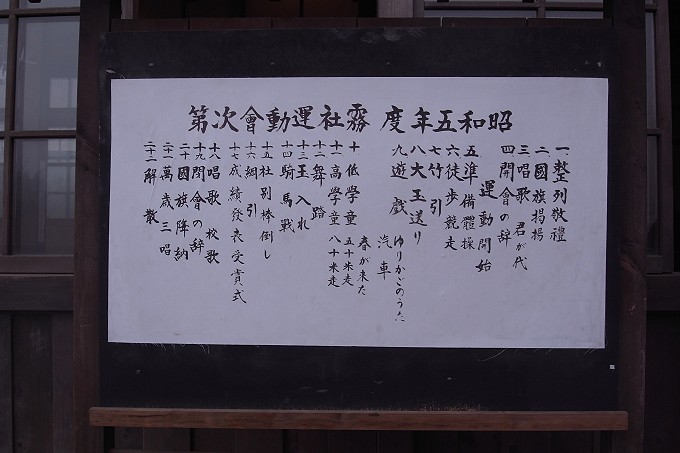 昭和五年度 霧社運動會次第
一整列敬禮
二國旗掲揚
三唱歌 君が代
四開會の辞
運動開始
五準備體操
六徒歩競走
七竹引
八大玉送り
九遊戯 ゆりかごのうた
汽車
春が来た
十低學童 五十米走
十一高學童 八十米走
十二舞踏
十三玉入れ
十四騎馬戦
十五社別棒倒し
十六綱引
十七成績發表受賞式
十八唱歌 校歌
十九閉會の辞
二十國旗降納
二十一萬歳三唱
二十二解散